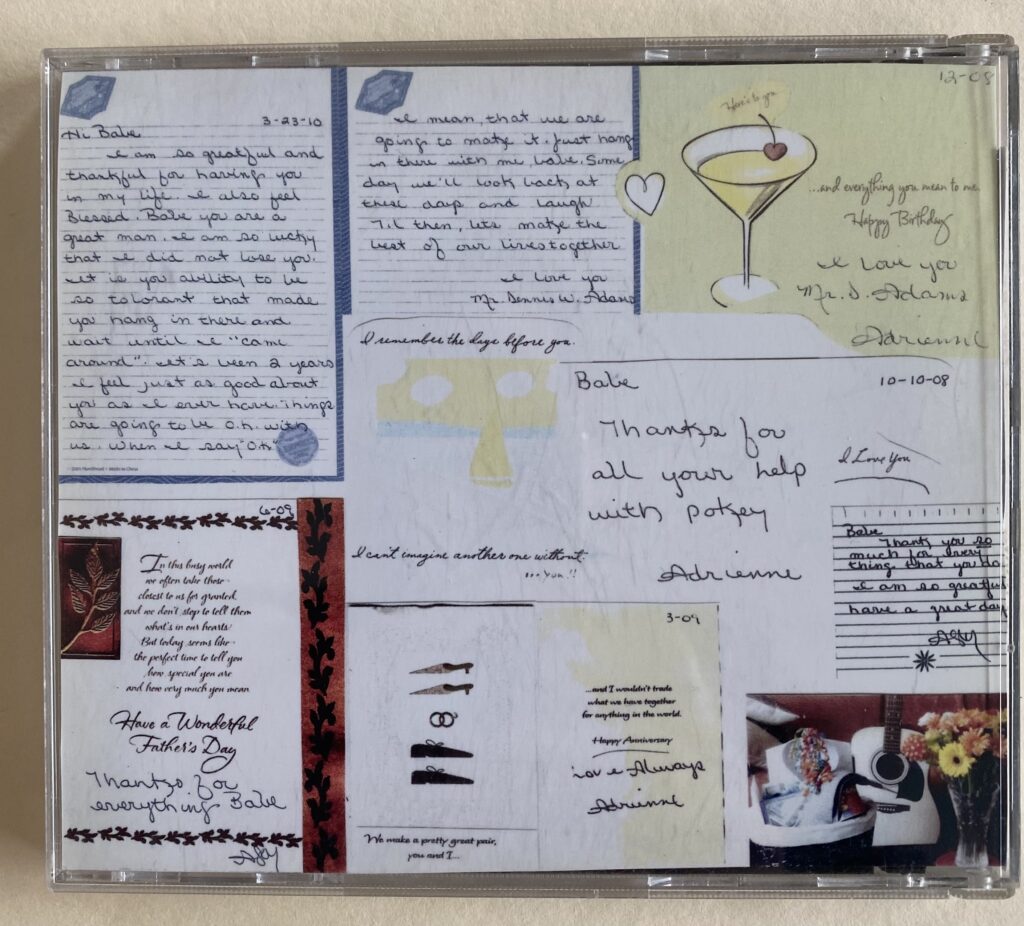 3-23-10
Hi Babe
I am so greatful and
thankful for having you
in my life. I also feel
Blessed. Babe you are a
great man. I am so lucky
that I did not lose you.
It is you ability to be
so tolorant that made
you hang in there and
wait until I "came
around". It's been 2 years
I feel just as good about
you as I ever have. Things
are going to be O.k. with
us. When I say "O.k."
I mean, that we are
going to make it. Just hang
in there with me, babe. Some
day we'll look back at
these days and laugh
Til then, lets make the
best of our lives together
I love you
Mr. Dennis W. Adams
12-08
Here's to you
...and everything you mean to me.
Happy Birthday
I Love you
Mr. D. Adams
Adrienne
I remember the days before you.
I can't imagine another one without
...you!!
Babe
10-10-08
Thanks for
all your help
with pokey
Adrienne
I Love You
Babe
Thank you so
much for every
thing that you do
I am so greatful
have a great day
6-09
In this busy world
we often take those
closest to us for granted
and we don't stop to tell them
what's in our hearts.
But today seems like
the perfect time to tell you
how special you are
and how very much you mean.
Have a Wonderful
Father's Day
Thanks for
everything Babe
We make a pretty great pair,
you and I...
3-09
...and I wouldn't trade
what we have together
for anything in the world.
Happy Anniversary
Love Always
Adrienne